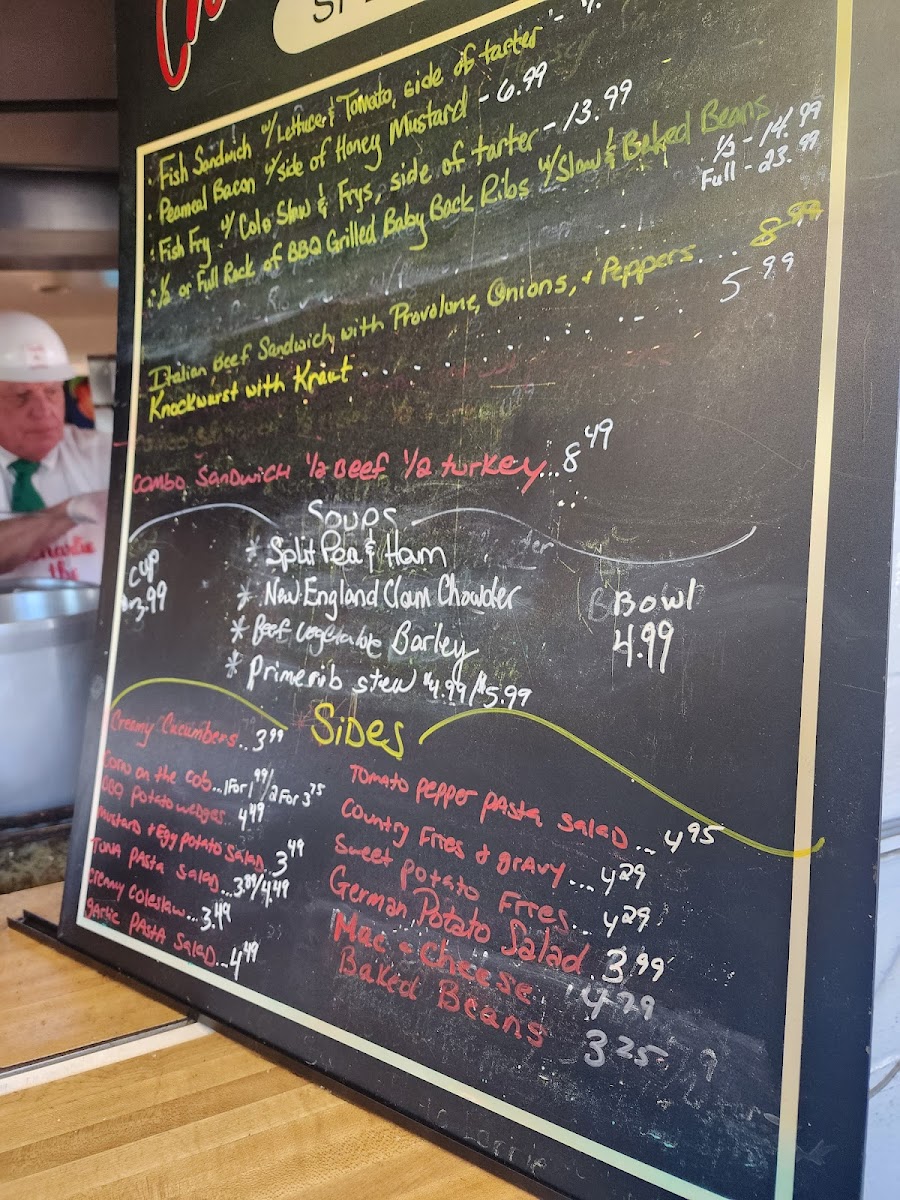 SPE
· Fish Sandwich w/ Lettuce & Tomato, side of tarter -
· Peameal Bacon w/ side of Honey Mustard - 6.99
· Fish Fry w/ Cole Slaw & Frys, side of tarter - 13.99
· ½ or Full Rack of BBQ Grilled Baby Back Ribs w/ Slaw & Baked Beans
½ - 14.99
Full - 23.99
Italian Beef Sandwich, with Provolone, Onions, + Peppers... 8.99
Knockwurst with Kraut ........... 5.99
Combo Sandwich ½ Beef ½ turkey... 8 49
Soups
Cup
3.99
* Split Pea & Ham
* New England Clam Chowder
* Beef vegetable Barley
* Prime rib stew $4.99/$5.99
Bowl
4.99
Sides
Creamy Cucumbers.. 3 99
Corn on the cob... 1 For 1 99/2 For 3 75
BBQ potato wedges 4 49
mustard + Egg potato salad.. 3 49
Tuna Pasta salad... 3.89/4.49
creamy coleslaw... 3.49
garlic Pasta Salad... 4 49
Tomato pepper pasta salad... 4 95
Country Fries & gravy... 4 29
Sweet potato Fries.. 4 29
German Potato Salad 3 99
Mac + Cheese 4 29
Baked Beans 3 25
Charlie
the